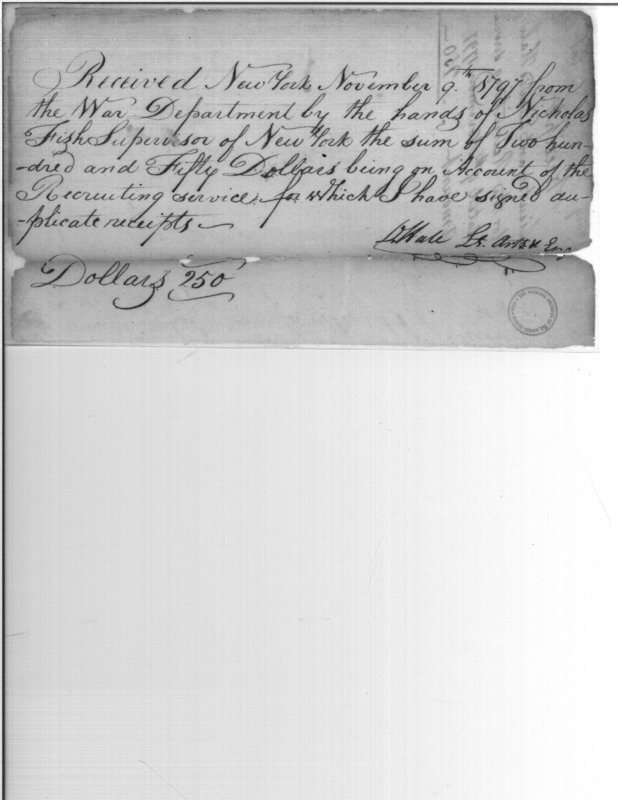 Received New York November 9th. 1797 from
the War Department by the hands of Nicholas
Fish Supervisor of New York the sum of Two hun-
-dred and Fifty Dollars being on Account of the
Recruiting service, for which I have signed du-
-plicate receipts
Lt. Art & Eng
Dollars 250